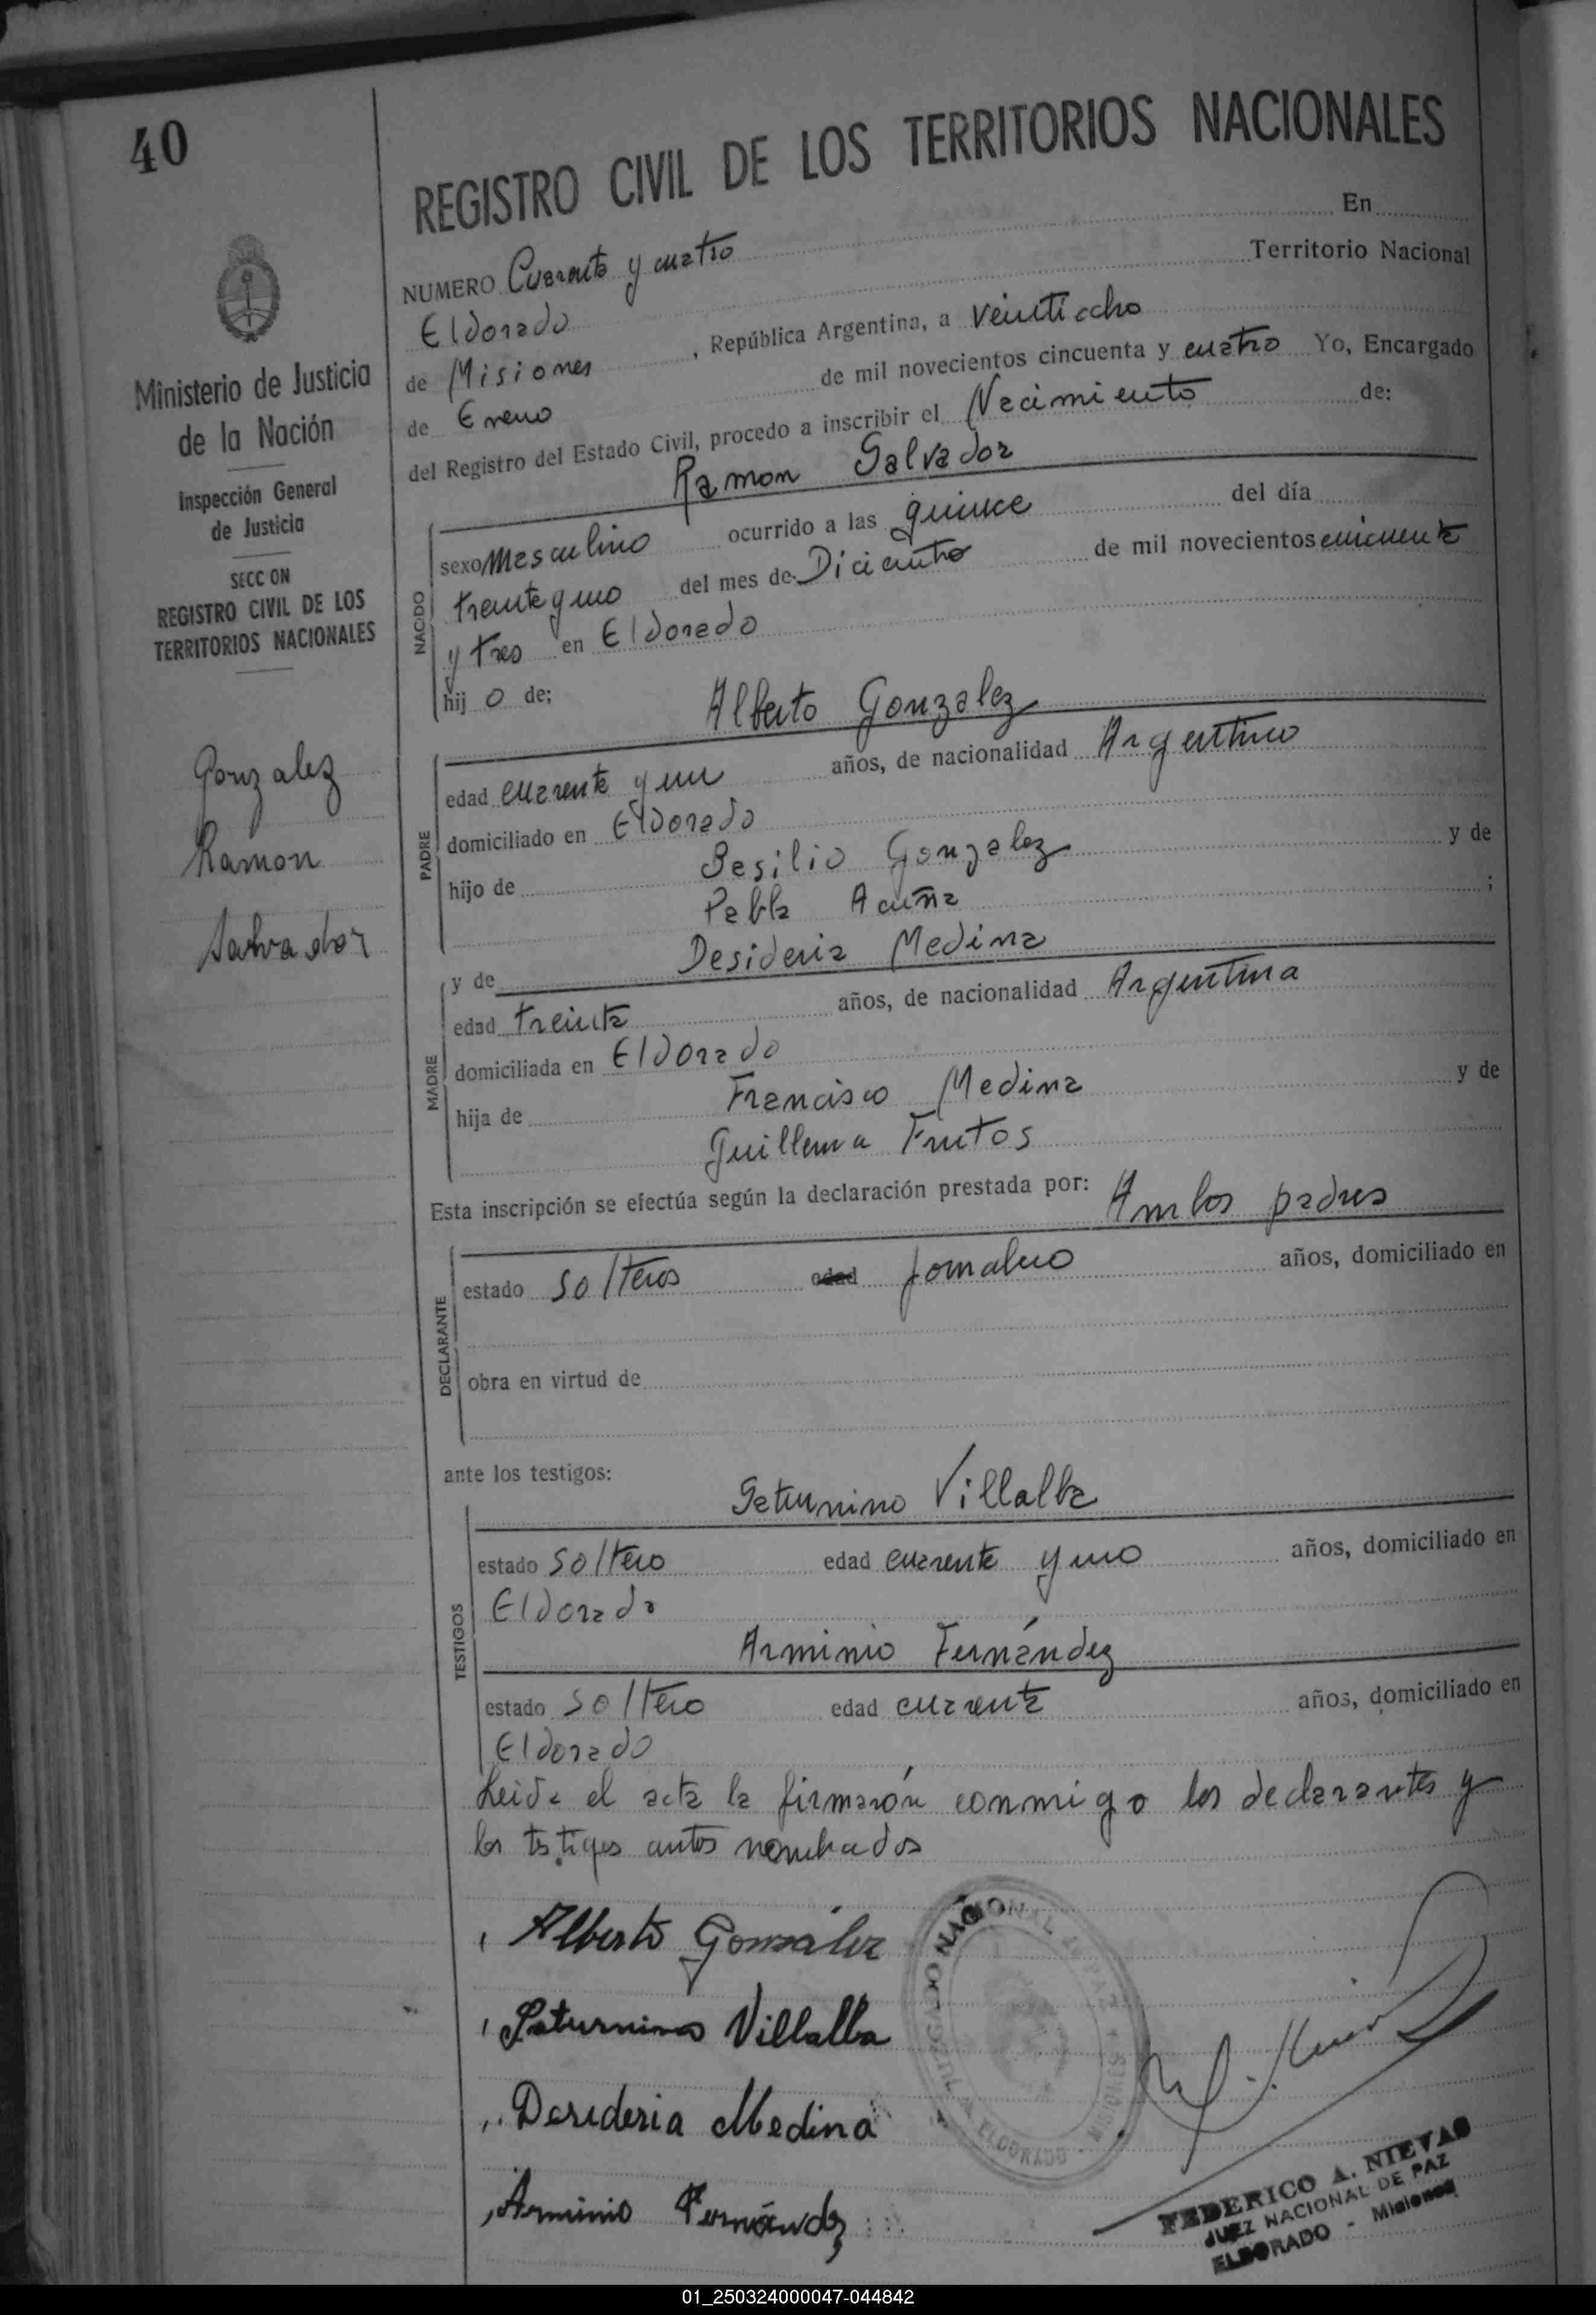 40
REGISTRO CIVIL DE LOS TERRITORIOS NACIONALES
Ministerio de Justicia
de la Nación
Inspección General
de Justicia
SECC ON
REGISTRO CIVIL DE LOS
TERRITORIOS NACIONALES
Gonzalez
Ramon
Salvador
NUMERO Cuarenta y cuatro En
Eldorado Territorio Nacional
de Misiones, República Argentina, a veintiocho
de Enero de mil novecientos cincuenta y cuatro Yo, Encargado
del Registro del Estado Civil, procedo a inscribir el Nacimiento de:
Ramon Salvador
NACIDO
sexo masculino ocurrido a las quince del día
treinta y uno del mes de Diciembre de mil novecientos cincuenta
y tres en Eldorado
hij o de;
Alberto Gonzalez
PADRE
edad cuarenta y un años, de nacionalidad Argentino
domiciliado en Eldorado
hijo de Basilio Gonzalez y de
Pabla Acuña ;
y de Desideria Medina
MADRE
edad treinta años, de nacionalidad Argentina
domiciliada en Eldorado
hija de Francisco Medina y de
Guillerma Frutos
Esta inscripción se efectúa según la declaración prestada por: Ambos padres
DECLARANTE
estado solteros edad jornalero años, domiciliado en
obra en virtud de
ante los testigos:
Saturnino Villalba
TESTIGOS
estado soltero edad cuarenta y uno años, domiciliado en
Eldorado
Arminio Fernández
estado soltero edad cuarenta años, domiciliado en
Eldorado
Leida el acta la firmarón conmigo los declarantes y
los testigos antes nombrados
Alberto González
Saturnino Villalba
Desideria Medina
Arminio Fernández
JUZGADO NACIONAL DE PAZ
ELDORADO - MISIONES
FEDERICO A. NIEVAS
JUEZ NACIONAL DE PAZ
ELDORADO - Misiones
01_250324000047-044842